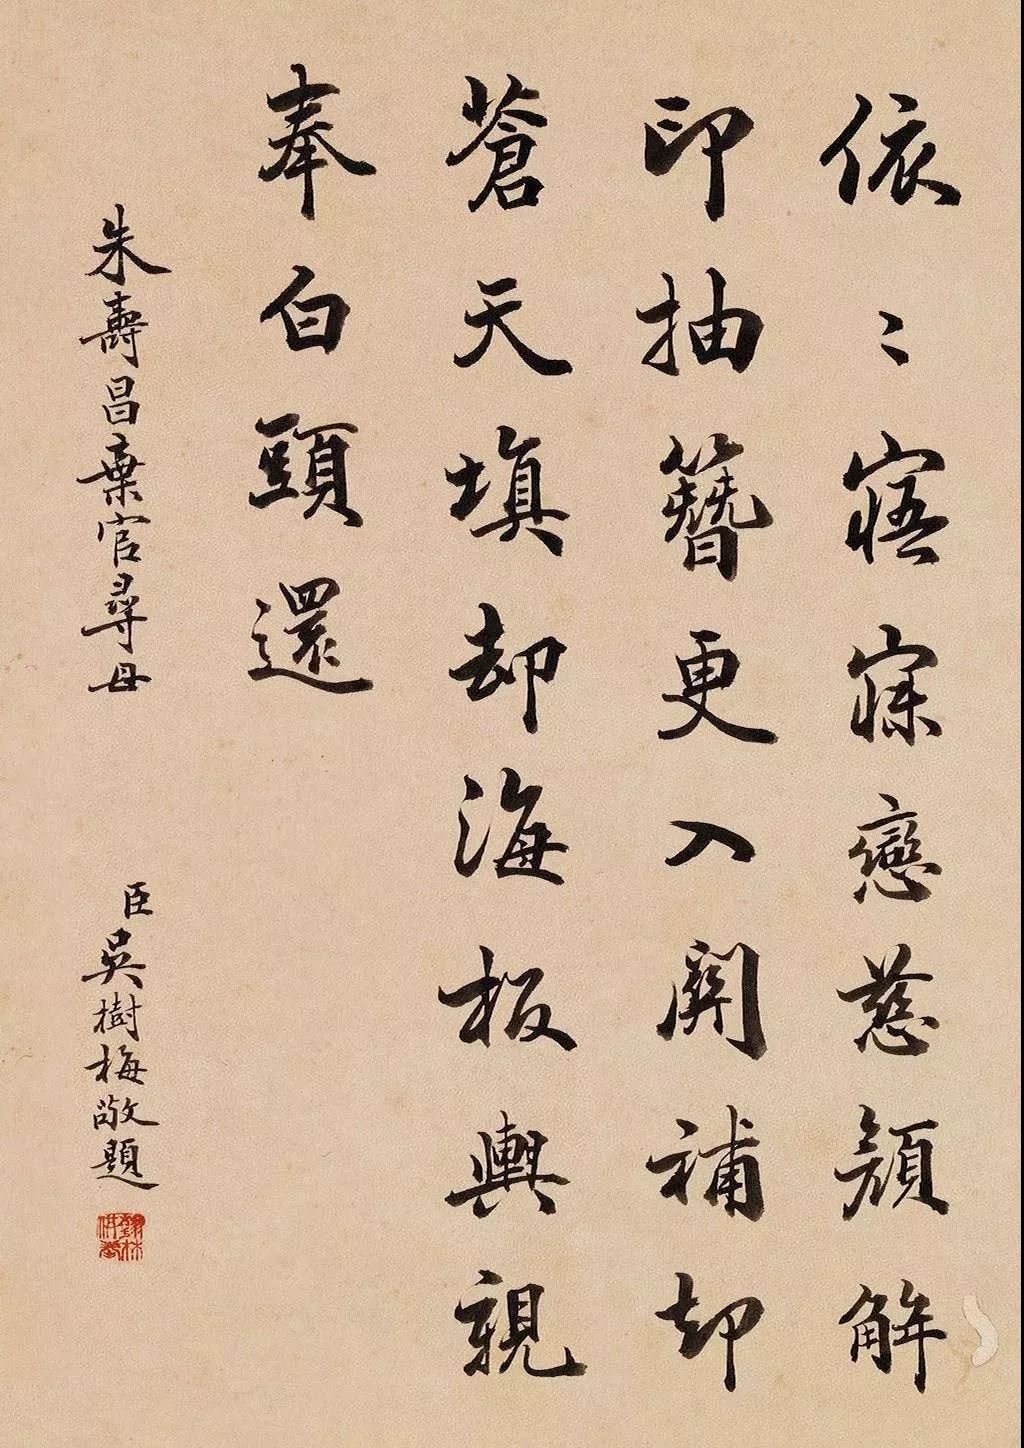 依〻寤寐戀慈顔解
印抽簪更入關補却
蒼天填却海板輿親
奉白頭還
朱壽昌棄官尋母
臣吳樹梅敬題